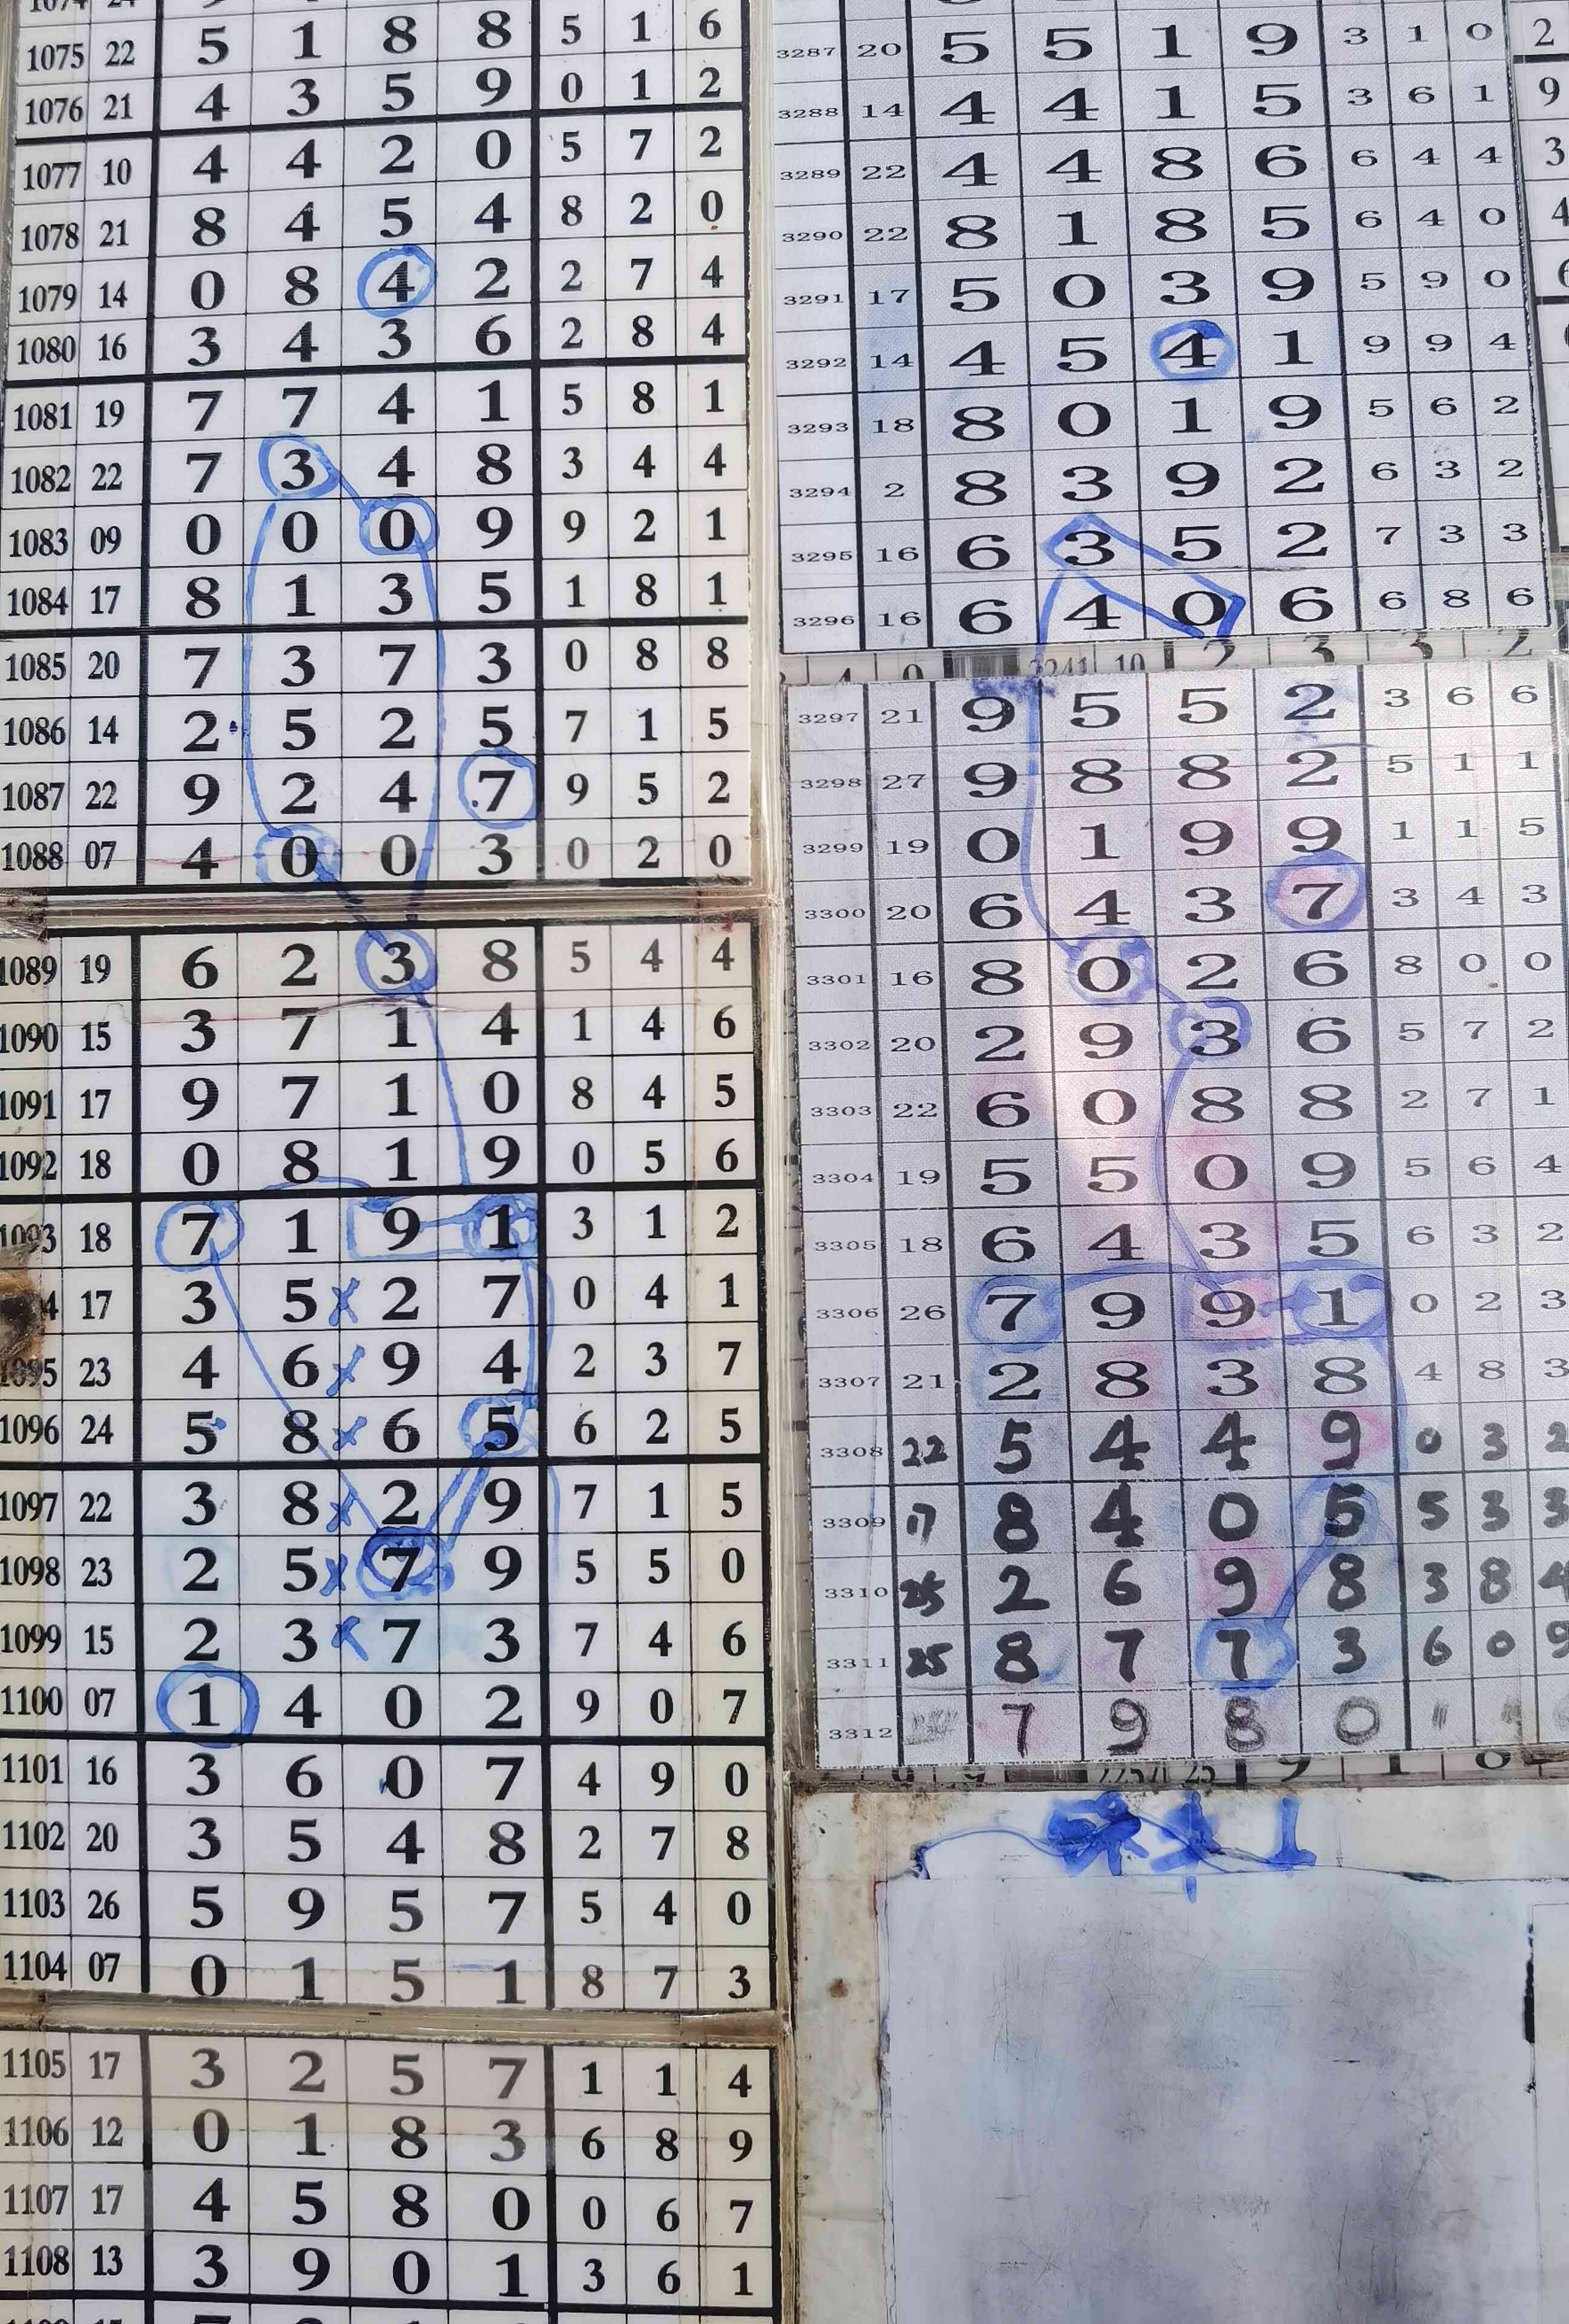 1075 22 5 1 8 8 5 1 6
1076 21 4 3 5 9 0 1 2
1077 10 4 4 2 0 5 7 2
1078 21 8 4 5 4 8 2 0
1079 14 0 8 4 2 2 7 4
1080 16 3 4 3 6 2 8 4
1081 19 7 7 4 1 5 8 1
1082 22 7 3 4 8 3 4 4
1083 09 0 0 0 9 9 2 1
1084 17 8 1 3 5 1 8 1
1085 20 7 3 7 3 0 8 8
1086 14 2 5 2 5 7 1 5
1087 22 9 2 4 7 9 5 2
1088 07 4 0 0 3 0 2 0
1089 19 6 2 3 8 5 4 4
1090 15 3 7 1 4 1 4 6
1091 17 9 7 1 0 8 4 5
1092 18 0 8 1 9 0 5 6
1093 18 7 1 9 1 3 1 2
4 17 3 5 x 2 7 0 4 1
1095 23 4 6 x 9 4 2 3 7
1096 24 5 8 x 6 5 6 2 5
1097 22 3 8 x 2 9 7 1 5
1098 23 2 5 x 7 9 5 5 0
1099 15 2 3 x 7 3 7 4 6
1100 07 1 4 0 2 9 0 7
1101 16 3 6 0 7 4 9 0
1102 20 3 5 4 8 2 7 8
1103 26 5 9 5 7 5 4 0
1104 07 0 1 5 1 8 7 3
1105 17 3 2 5 7 1 1 4
1106 12 0 1 8 3 6 8 9
1107 17 4 5 8 0 0 6 7
1108 13 3 9 0 1 3 6 1
3287 20 5 5 1 9 3 1 0 2
3288 14 4 4 1 5 3 6 1 9
3289 22 4 4 8 6 6 4 4 3
3290 22 8 1 8 5 6 4 0 4
3291 17 5 0 3 9 5 9 0
3292 14 4 5 4 1 9 9 4
3293 18 8 0 1 9 5 6 2
3294 2 8 3 9 2 6 3 2
3295 16 6 3 5 2 7 3 3
3296 16 6 4 0 6 6 8 6
3297 21 9 5 5 2 3 6 6
3298 27 9 8 8 2 5 1 1
3299 19 0 1 9 9 1 1 5
3300 20 6 4 3 7 3 4 3
3301 16 8 0 2 6 8 0 0
3302 20 2 9 3 6 5 7 2
3303 22 6 0 8 8 2 7 1
3304 19 5 5 0 9 5 6 4
3305 18 6 4 3 5 6 3 2
3306 26 7 9 9 1 0 2 3
3307 21 2 8 3 8 4 8 3
3308 22 5 4 4 9 0 3 2
3309 17 8 4 0 5 5 3 3
3310 25 2 6 9 8 3 8 4
3311 25 8 7 7 3 6 0 9
3312 7 9 8 0